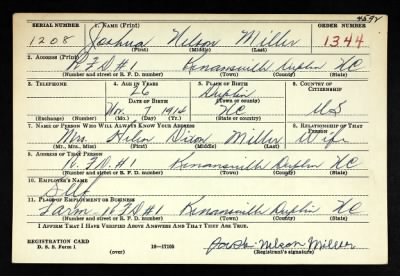 4594
SERIAL NUMBER 1. NAME (Print) ORDER NUMBER
1208 Joshua Nelson Miller 1344
(First) (Middle) (Last)
2. ADDRESS (Print)
R.F.D #1 Kenansville Duplin NC
(Number and street or R. F. D. number) (Town) (County) (State)
3. TELEPHONE 4. AGE IN YEARS 5. PLACE OF BIRTH 6. COUNTRY OF CITIZENSHIP
26 Duplin
DATE OF BIRTH (Town or county)
Nov. 7 1914 NC US
(Exchange) (Number) (Mo.) (Day) (Yr.) (State or country)
7. NAME OF PERSON WHO WILL ALWAYS KNOW YOUR ADDRESS 8. RELATIONSHIP OF THAT PERSON
Mrs. Helen Dixon Miller Wife
(Mr., Mrs., Miss) (First) (Middle) (Last)
9. ADDRESS OF THAT PERSON
R.F.D. #1 Kenansville Duplin NC
(Number and street or R. F. D. number) (Town) (County) (State)
10. EMPLOYER'S NAME
Self
11. PLACE OF EMPLOYMENT OR BUSINESS
Farm RFD #1 Kenansville Duplin NC
(Number and street or R. F. D. number) (Town) (County) (State)
I AFFIRM THAT I HAVE VERIFIED ABOVE ANSWERS AND THAT THEY ARE TRUE.
REGISTRATION CARD
D. S. S. Form 1 (over) 16—17105 Nelson Miller
(Registrant's signature)